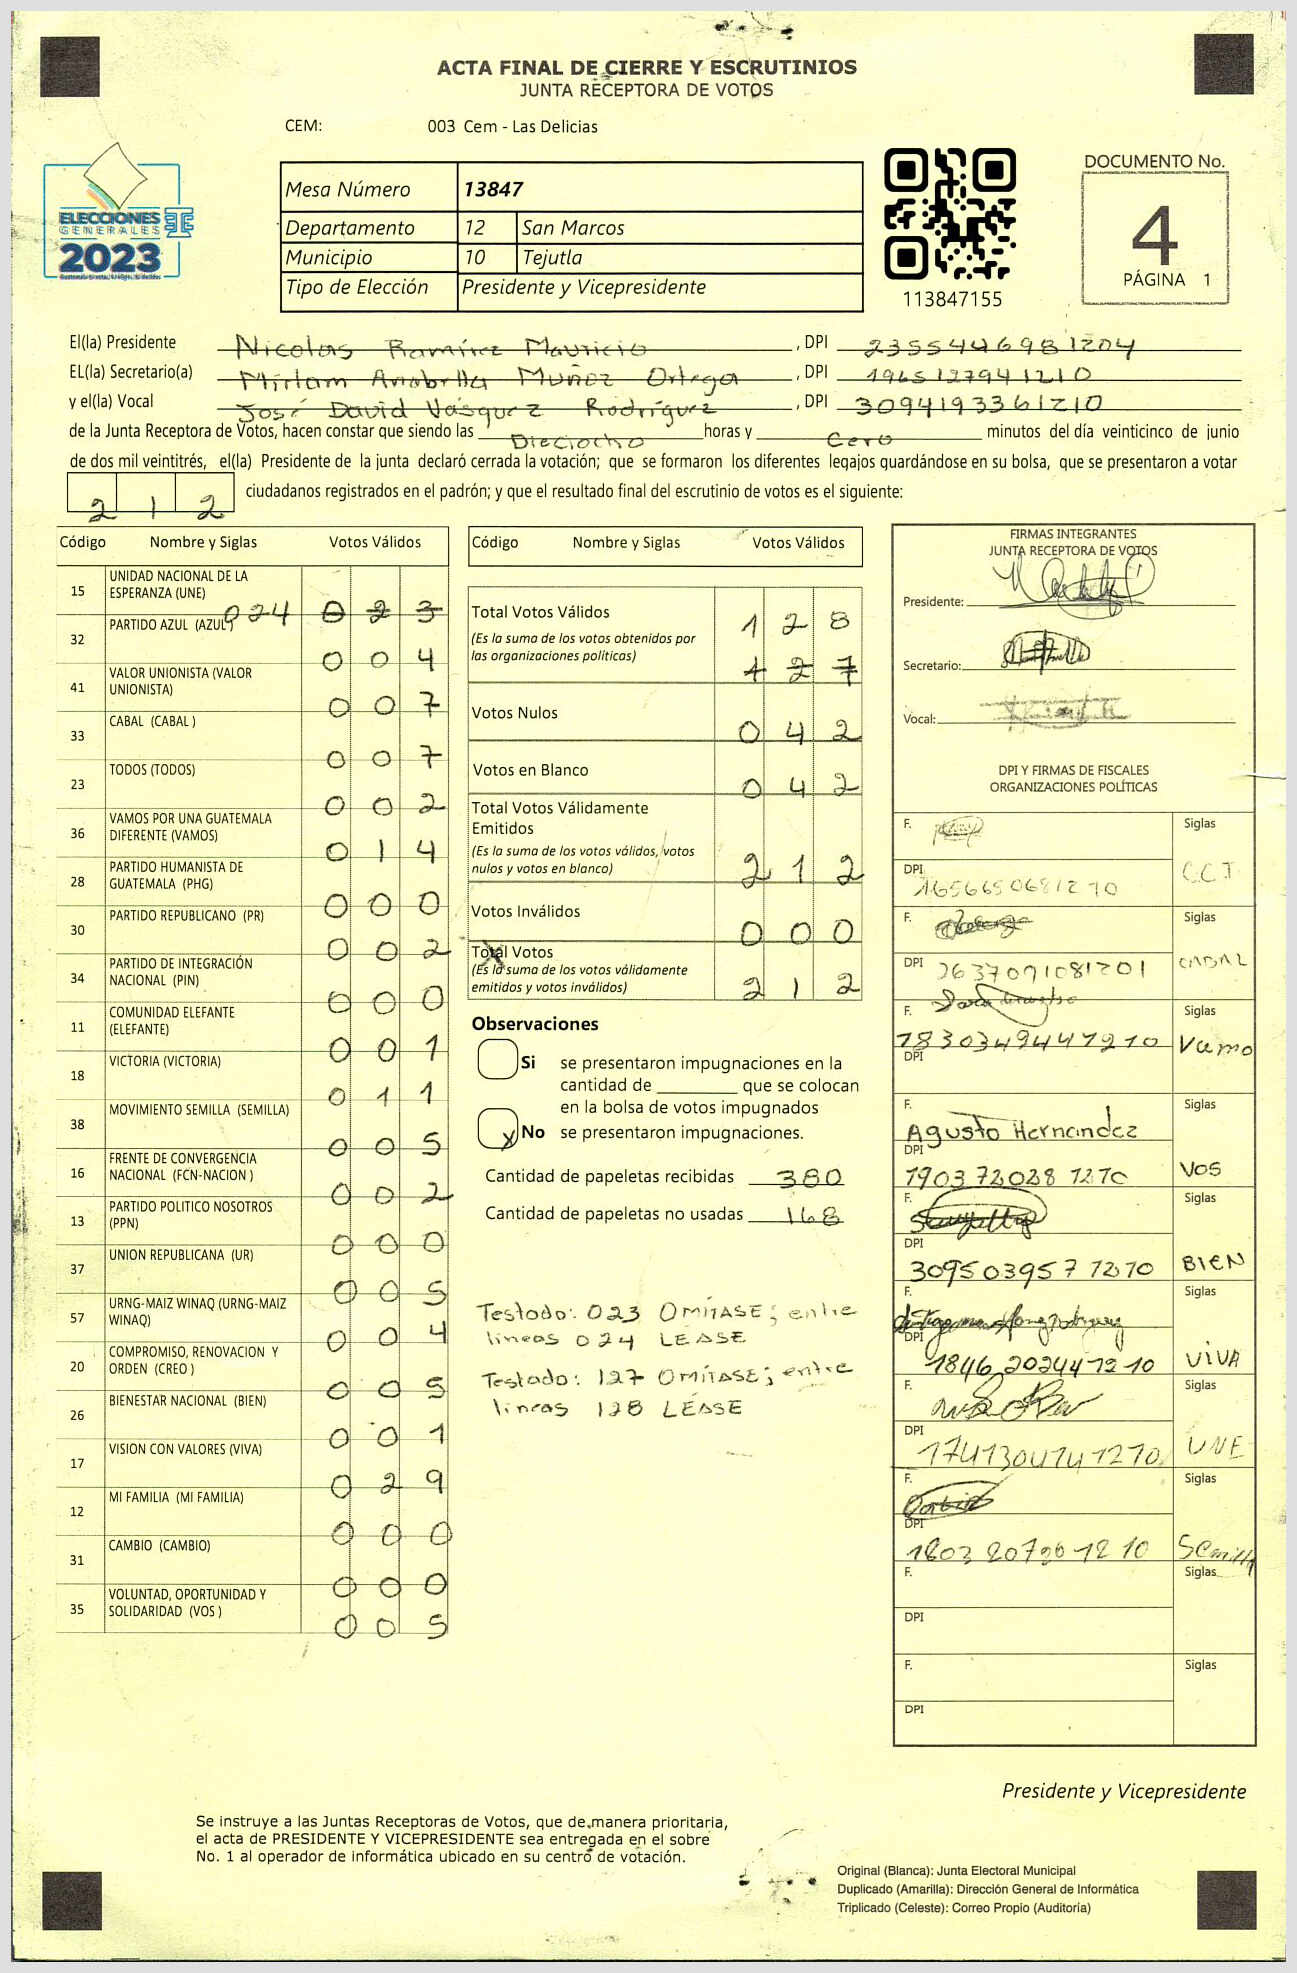 ACTA FINAL DE CIERRE Y ESCRUTINIOS
JUNTA RECEPTORA DE VOTOS
CEM: 003 Cem - Las Delicias
ELECCIONES
GENERALES
2023
Mesa Número 13847
Departamento 12 San Marcos
Municipio 10 Tejutla
Tipo de Elección Presidente y Vicepresidente
113847155
DOCUMENTO No.
4
PÁGINA 1
El(la) Presidente Nicolas Ramírez Mauricio, DPI 2355446981204
EL(la) Secretario(a) Miriam Anabella Muñoz Ortega, DPI 1965127941210
y el(la) Vocal José David Vásquez Rodríguez, DPI 3094193361210
de la Junta Receptora de Votos, hacen constar que siendo las Dieciocho horas y Cero minutos del día veinticinco de junio
de dos mil veintitrés, el(la) Presidente de la junta declaró cerrada la votación; que se formaron los diferentes legajos guardándose en su bolsa, que se presentaron a votar
212 ciudadanos registrados en el padrón; y que el resultado final del escrutinio de votos es el siguiente:
Código Nombre y Siglas Votos Válidos
15 UNIDAD NACIONAL DE LA ESPERANZA (UNE) 024 023
32 PARTIDO AZUL (AZUL) 004
41 VALOR UNIONISTA (VALOR UNIONISTA) 007
33 CABAL (CABAL ) 007
23 TODOS (TODOS) 002
36 VAMOS POR UNA GUATEMALA DIFERENTE (VAMOS) 014
28 PARTIDO HUMANISTA DE GUATEMALA (PHG) 000
30 PARTIDO REPUBLICANO (PR) 002
34 PARTIDO DE INTEGRACIÓN NACIONAL (PIN) 000
11 COMUNIDAD ELEFANTE (ELEFANTE) 001
18 VICTORIA (VICTORIA) 011
38 MOVIMIENTO SEMILLA (SEMILLA) 005
16 FRENTE DE CONVERGENCIA NACIONAL (FCN-NACION ) 002
13 PARTIDO POLITICO NOSOTROS (PPN) 000
37 UNION REPUBLICANA (UR) 005
57 URNG-MAIZ WINAQ (URNG-MAIZ WINAQ) 004
20 COMPROMISO, RENOVACION Y ORDEN (CREO ) 005
26 BIENESTAR NACIONAL (BIEN) 001
17 VISION CON VALORES (VIVA) 029
12 MI FAMILIA (MI FAMILIA) 000
31 CAMBIO (CAMBIO) 000
35 VOLUNTAD, OPORTUNIDAD Y SOLIDARIDAD (VOS ) 005
Código Nombre y Siglas Votos Válidos
Total Votos Válidos 128
(Es la suma de los votos obtenidos por
las organizaciones políticas) 127
Votos Nulos 042
Votos en Blanco 042
Total Votos Válidamente
Emitidos
(Es la suma de los votos válidos, votos
nulos y votos en blanco) 212
Votos Inválidos 000
Total Votos
(Es la suma de los votos válidamente
emitidos y votos inválidos) 212
Observaciones
Si se presentaron impugnaciones en la
cantidad de ________ que se colocan
en la bolsa de votos impugnados
X No se presentaron impugnaciones.
Cantidad de papeletas recibidas 380
Cantidad de papeletas no usadas 168
Testado: 023 OMÍTASE; entre
líneas 024 LEASE
Testado: 127 OMÍTASE; entre
líneas 128 LÉASE
FIRMAS INTEGRANTES
JUNTA RECEPTORA DE VOTOS
Presidente:
Secretario:
Vocal:
DPI Y FIRMAS DE FISCALES
ORGANIZACIONES POLÍTICAS
F. Siglas
DPI 1656650681210
F. Siglas
DPI 2637091081201 CABAL
F. Siglas
1830349441210 Vamo
DPI
F. Agusto Hernandez Siglas
DPI 1903720281210 VOS
F. Siglas
DPI 3095039571210 BIEN
F. Siglas
DPI 1846202441210 VIVA
F. Siglas
DPI 1741304741210 UNE
F. Siglas
DPI 1803207201210 Semilla
F. Siglas
DPI
F. Siglas
DPI
Presidente y Vicepresidente
Se instruye a las Juntas Receptoras de Votos, que de manera prioritaria,
el acta de PRESIDENTE Y VICEPRESIDENTE sea entregada en el sobre
No. 1 al operador de informática ubicado en su centro de votación.
Original (Blanca): Junta Electoral Municipal
Duplicado (Amarilla): Dirección General de Informática
Triplicado (Celeste): Correo Propio (Auditoría)